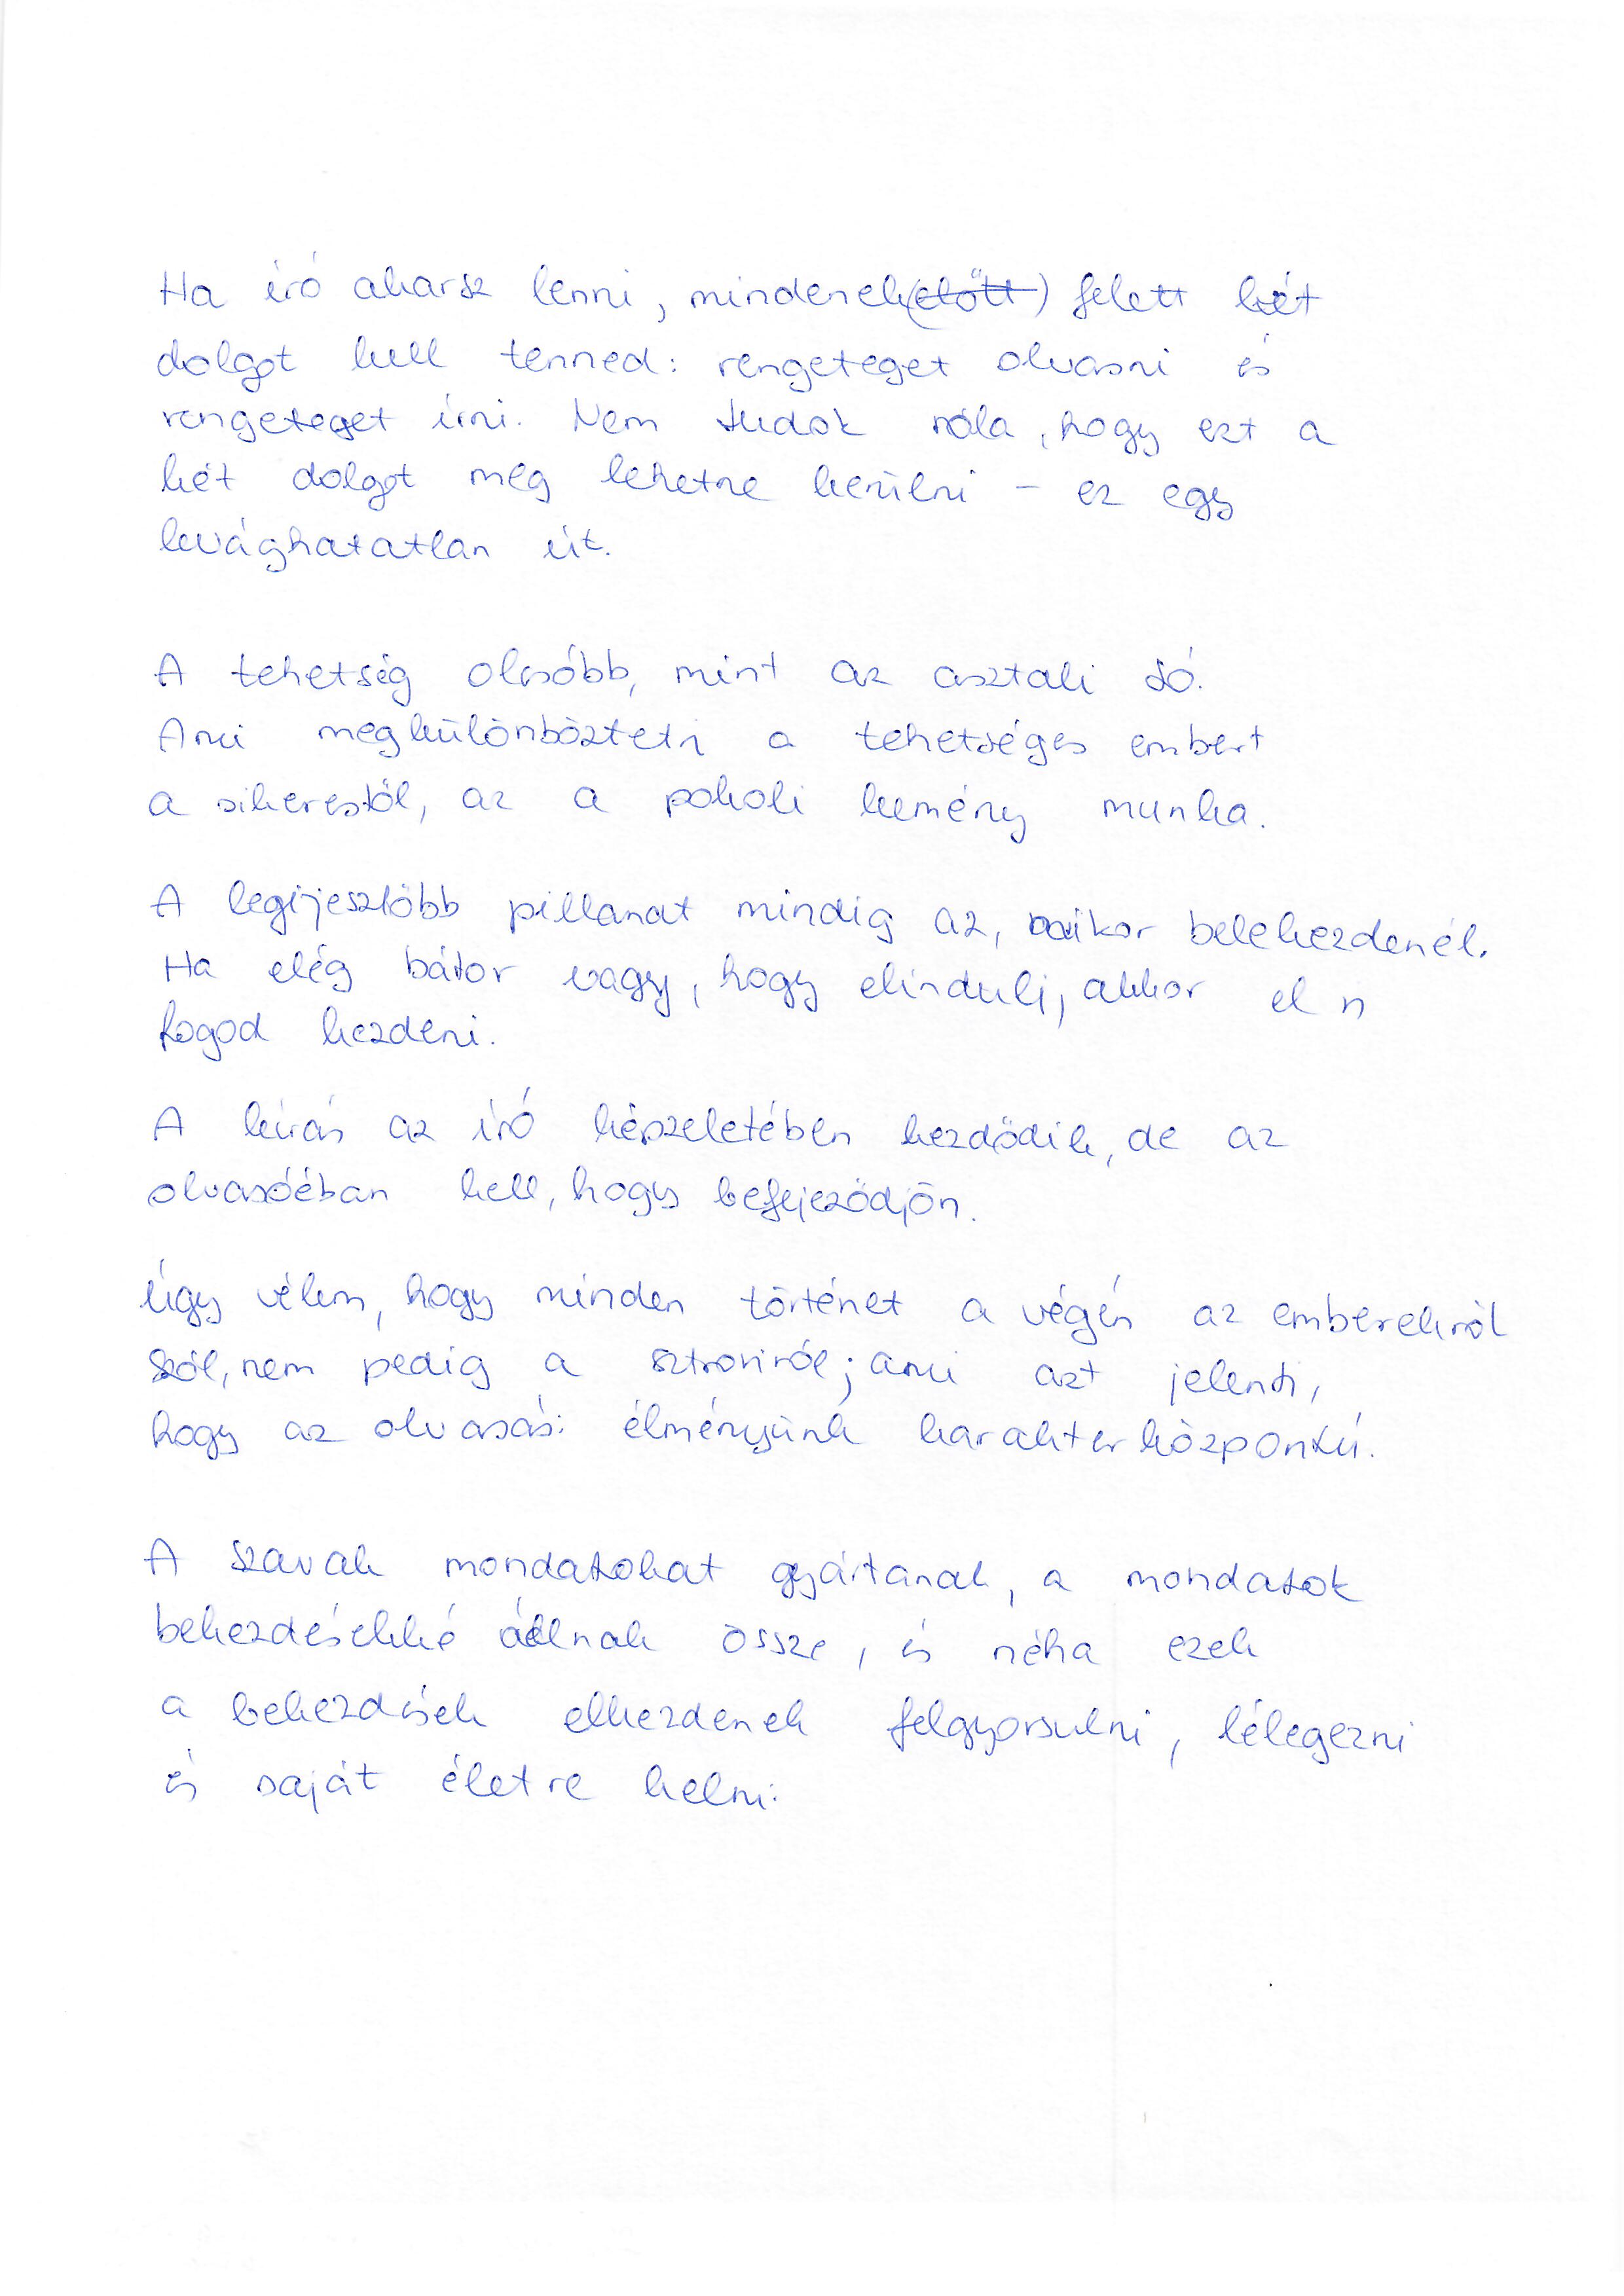 Ha író akarsz lenni, mindenek (előtt) felett két
dolgot kell tenned: rengeteget olvasni és
rengeteget írni. Nem tudok róla, hogy ezt a
két dolgot meg lehetne kerülni – ez egy
levághatatlan út.
A tehetség olcsóbb, mint az asztali só.
Ami megkülönbözteti a tehetséges embert
a sikerestől, az a pokoli kemény munka.
A legijesztőbb pillanat mindig az, mikor belekezdenél.
Ha elég bátor vagy, hogy elindulj, akkor el is
fogod kezdeni.
A leírás az író képzeletében kezdődik, de az
olvasóéban kell, hogy befejeződjön.
Úgy vélem, hogy minden történet a végén az emberekről
szól, nem pedig a sztoriról; ami azt jelenti,
hogy az olvasási élményünk karakterközpontú.
A szavak mondatokat gyártanak, a mondatok
bekezdésekké állnak össze, és néha ezek
a bekezdések elkezdenek felgyorsulni, lélegezni
és saját életre kelni.